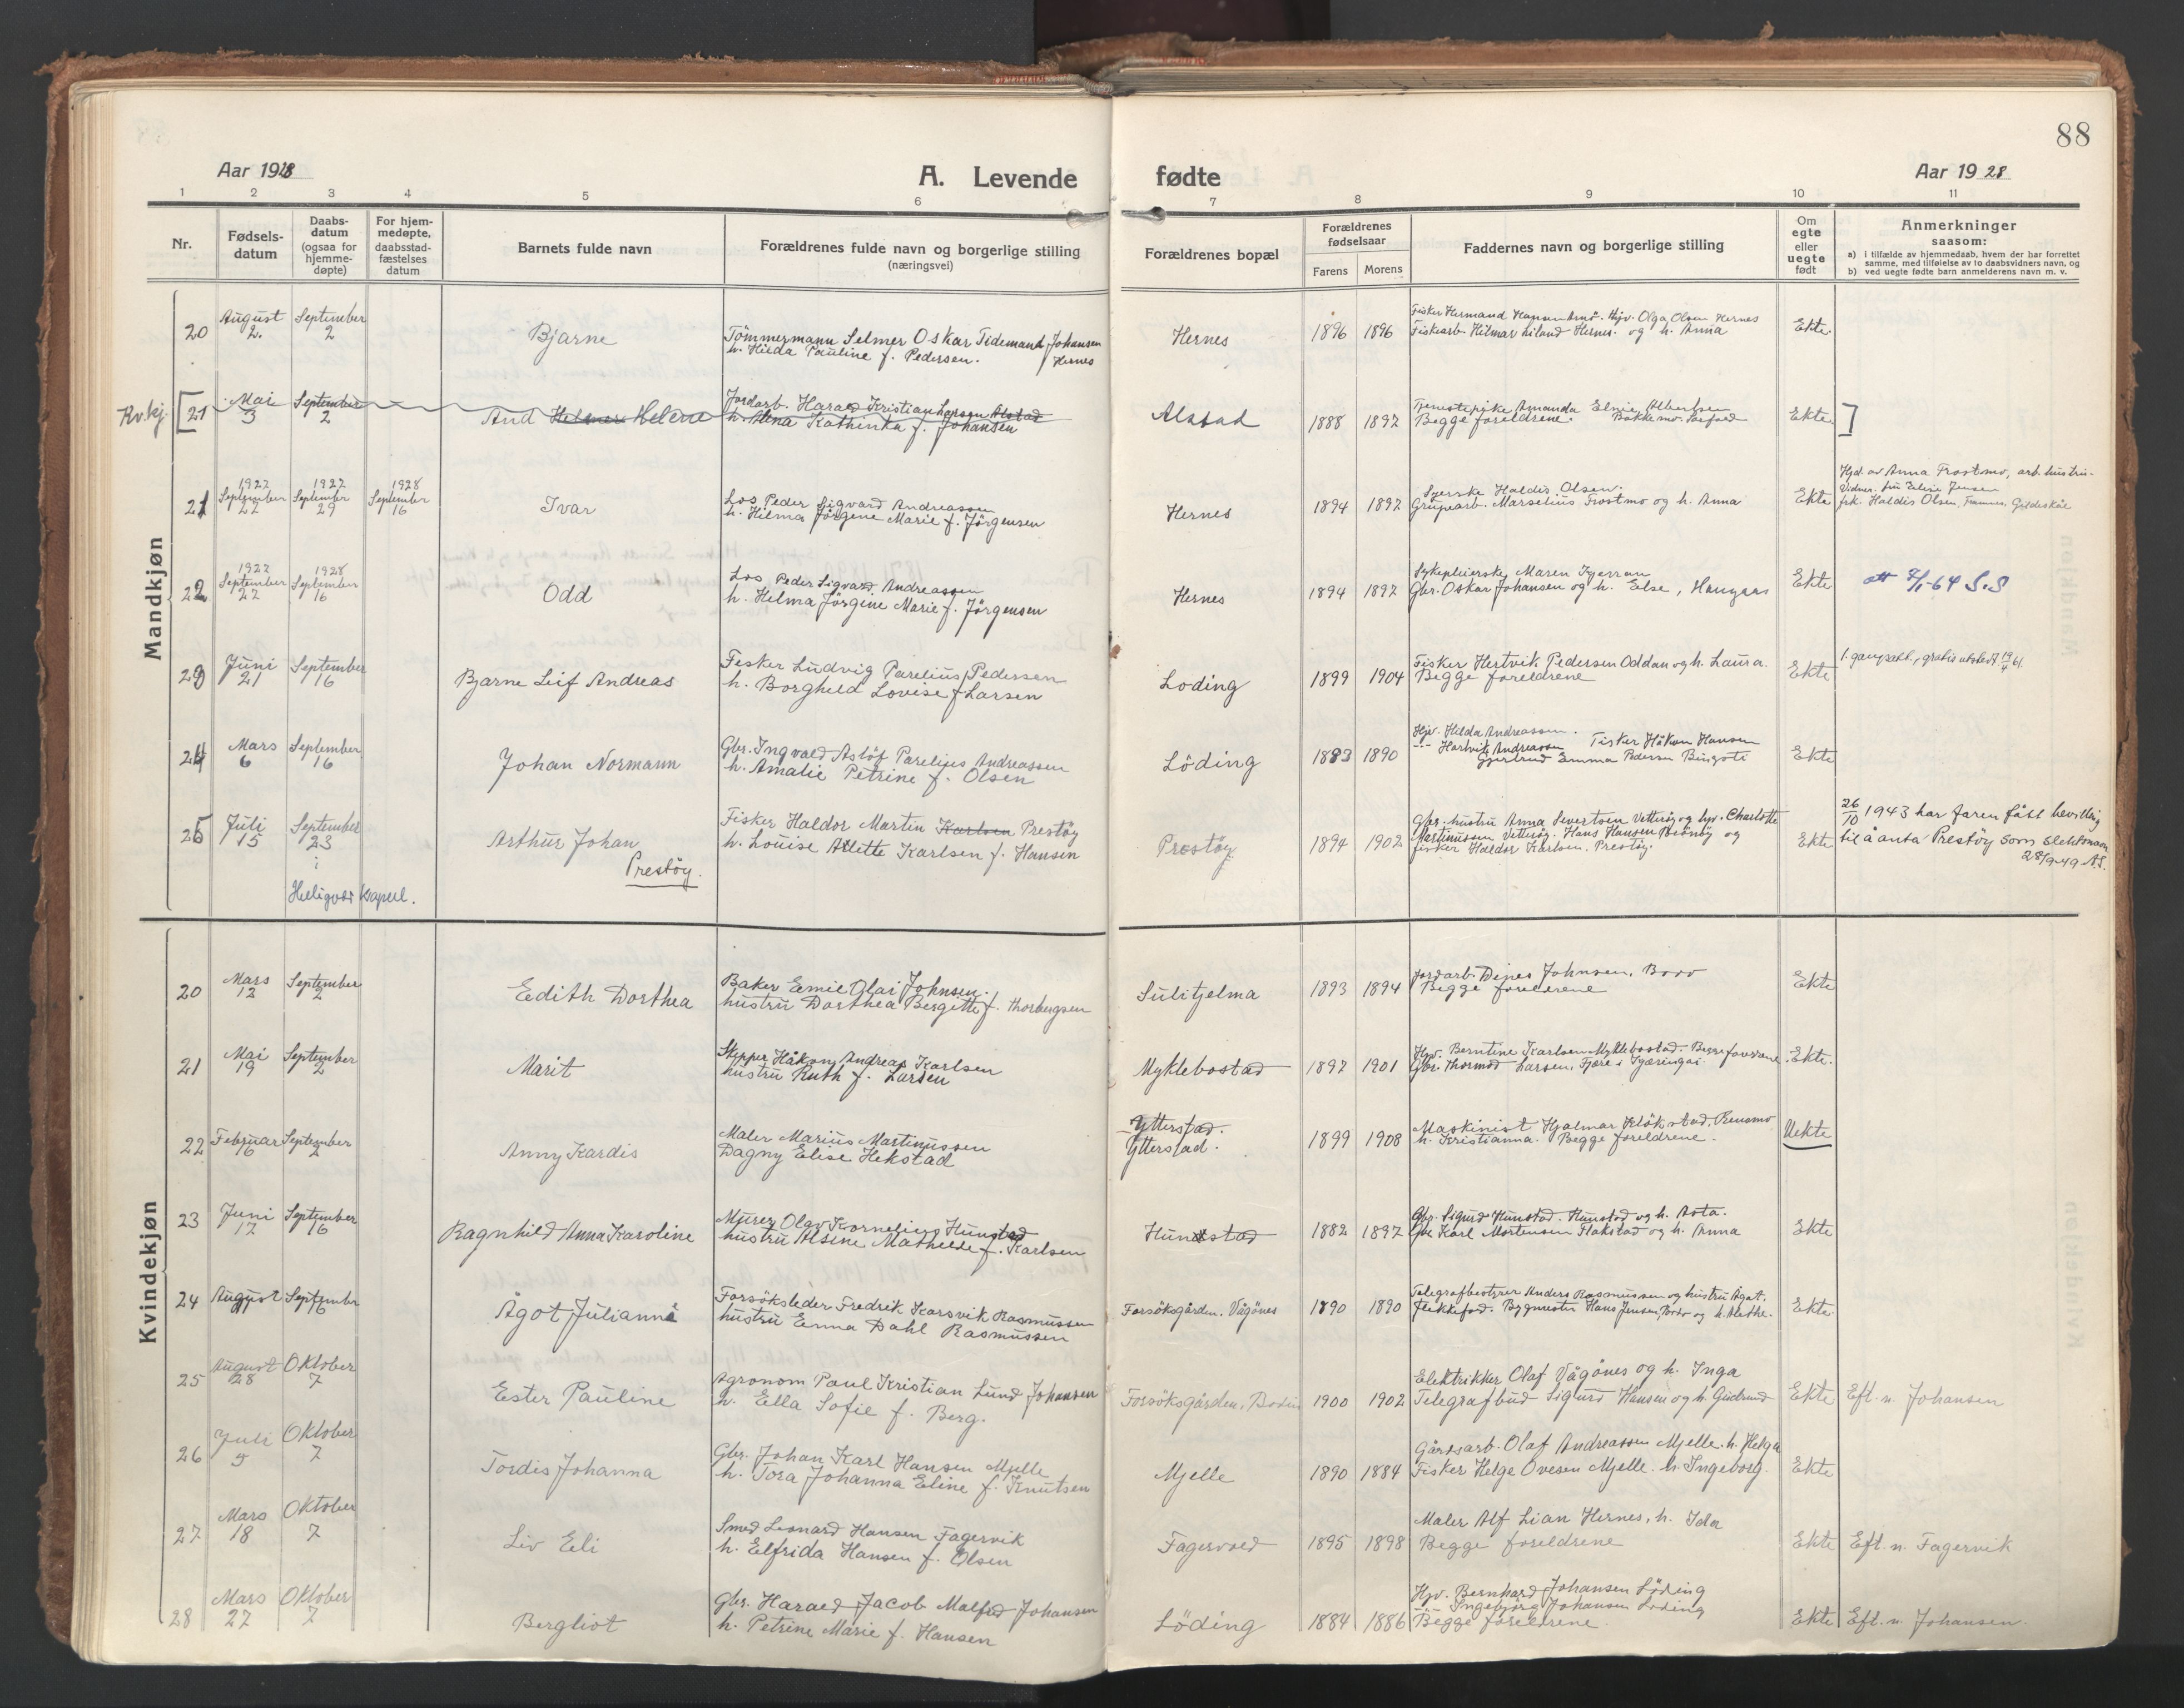 88
Aar 1928
A. Levende fødte
Aar 1928
1 2 3 4 5 6 7 8 9 10 11
Nr.
Fødsels-
datum
Daabs-
datum
(ogsaa for
hjemme-
døpte)
For hjem-
medøpte,
daabsstad-
fæstelses
datum
Barnets fulde navn
Forældrenes fulde navn og borgerlige stilling
(næringsvei)
Forældrenes bopæl
Forældrenes
fødselsaar
Farens Morens
Faddernes navn og borgerlige stilling
Om
egte
eller
uegte
født
Anmerkninger
saasom:
a) i tilfælde av hjemmedaab, hvem der har forrettet
samme, med tilføielse av to daabsvidners navn, og
b) ved uegte fødte barn anmelderens navn m. v.
Mandkjøn
20
August
2.
September
2
Bjarne
Tömmermann Selmer Oskar Tidemand Johansen
h. Hilda Pauline f. Pedersen. Hernes
Hernes
1896 1896
Fisker Hermand Hansen Hjv. Olga Olsen Hernes
Fiskearb. Hilmar Hernes. og h. Anna
Ekte.
Kv.kj.
[21
Mai
3
September
2
Aud Helmer Helene
Jordarb. Harald Kristian Larsen Alstad
h. Alma Kathinka f. Johansen
Alstad
1888 1897
Tjenestepike Amanda Albertsen
Begge foreldrene.
Ekte. ]
21
1927
September
27
1927
September
29
1928
September
16
Ivar
Los Peder Sigvard Andreassen
h. Hilma Jörgene Marie f. Jörgensen
Hernes
1894 1897
Syerske Haldis Olsen.
Grubearb. Marselius Trostmo og h. Anna
Ekte
Hjd. av Anna Trostmo, arb. hustru.
Vidner. fru Jensen
frk. Haldis Olsen, Gildeskål
22
1927
September
27
1928
September
16
Odd
Los Peder Sigvard Andreassen
h. Helma Jörgine Marie f. Jörgensen
Hernes
1894 1897
Sykepleierske Maren
Gbr. Oskar Johansen og h. Else,
Ekte
att 7/1-64 S.S
23
Juni
21
September
16
Bjarne Leif Andreas
Fisker Ludvig Parelius Pedersen
h. Borghild Lovise f. Larsen
Loding
1899 1904
Fisker Hertvik Pedersen Oddan og h. Laura.
Begge foreldrene
Ekte
1. gangsatt., gratis utstedt 19/4 61.
24
Mars
6
September
16
Johan Normann
Gbr. Ingvald Aslöf Parelius Andreassen
h. Amalie Petrine f. Olsen
Löding
1883 1890
Hjv. Hilda Andreassen.
-"- Hartvik Andreassen Fisker Håkon Hansen
Gjertrud Emma Pedersen
Ekte
25
Juli
15
September
23
Heligvær Kapell.
Arthur Johan
Prestöy.
Fisker Haldor Martin Karlsen Prestöy
h. Louise Alette Karlsen f. Hansen
Prestöy
1894 1902
Gbr. hustru Anna Sivertsen Vetteröy og hjv. Charlotte
Martinussen Vetteröy. Hans Hansen og
fisker Haldor Karlsen. Prestöy.
Ekte
26/10 1943 har faren fått bevilling
til å anta Prestöy som slektsnavn
28/9-49 A.S.
Kvindekjøn
20
Mars
12
September
2
Edith Dorthea
Baker Emil Olai Johnsen.
hustru Dorthea Bergitte f. Thorbergsen
Sulitjelma
1893 1894
Jordarb. Dines Johnsen, Bodö
Begge foreldrene
Ekte
21
Mai
19
September
2
Marit
Skipper Håkon Andreas Karlsen
hustru Ruth f. Larsen
Myklebostad
1897 1901
Hjv. Berntine Karlsen Myklebostad. Begge foreldrene
Gbr. Thormod Larsen, Fjære i Kjæringöi.
Ekte.
22
Februar
16
September
2
Anny Kardis
Maler Marius Martinussen
Dagny Elise Hekstad
Ytterstad.
Ytterstad.
1899 1908
Maskinist Hjalmar Klökstad,
h. Kristianna. Begge foreldrene.
Uekte
23
Juni
17
September
16
Ragnhild Anna Karoline
Murer Olav Kornelius Hunstad
hustru Alsine Mathilde f. Karlsen
Hunstad
1882 1897
Gbr. Sigurd Hunstad. Hunstad og h. Asta.
Gbr Karl Mortensen Flakstad og h. Anna
Ekte
24
August
September
16
Ågot Julianne
Forsöksleder Fredrik Karsvik Rasmussen
hustru Emma Dahl Rasmussen
Forsöksgården, Vågönes
1890 1890
Telegrafbestyrer Anders Rasmussen og hustru Ågot,
Flekkefjord. Bygmester Hans Jensen, Bodö og h. Alethe.
Ekte
25
August
28
Oktober
7
Ester Pauline
Agronom Paul Kristian Lund Johansen
h. Ella Sofie f. Berg.
Forsöksgården, Bodin
1900 1902
Elektrikker Olaf Vågönes og h. Inga
Telegrafbud Sigurd Hansen og h. Gudrund
Ekte
Eft. n. Johansen
26
Juli
5
Oktober
7
Tordis Johanna
Gbr. Johan Karl Hansen Mjelle
h. Tora Johanna Eline f. Knutsen
Mjelle
1890 1884
Gårdsarb. Olaf Andreassen Mjelle. h. Helga
Fisker Helge Ovesen Mjelle. h. Ingeborg.
Ekte
27
Mars
18
Oktober
7
Liv Eli
Smed Leonard Hansen Fagervik
h. Elfrida Hansen f. Olsen
Fagervold
1895 1898
Maler Alf Lian Hernes, h. Ida
Begge foreldrene
Ekte
Eft. n. Fagervik
28
Mars
27
Oktober
7
Bergliot
Gbr. Harald Jacob Malfred Johansen
h. Petrine Marie f. Hansen
Löding
1884 1886
Hjv. Bernhard Johansen Löding
-"- Ingebjörg Johansen Löding
Begge foreldrene.
Ekte
Eft. n. Johansen.